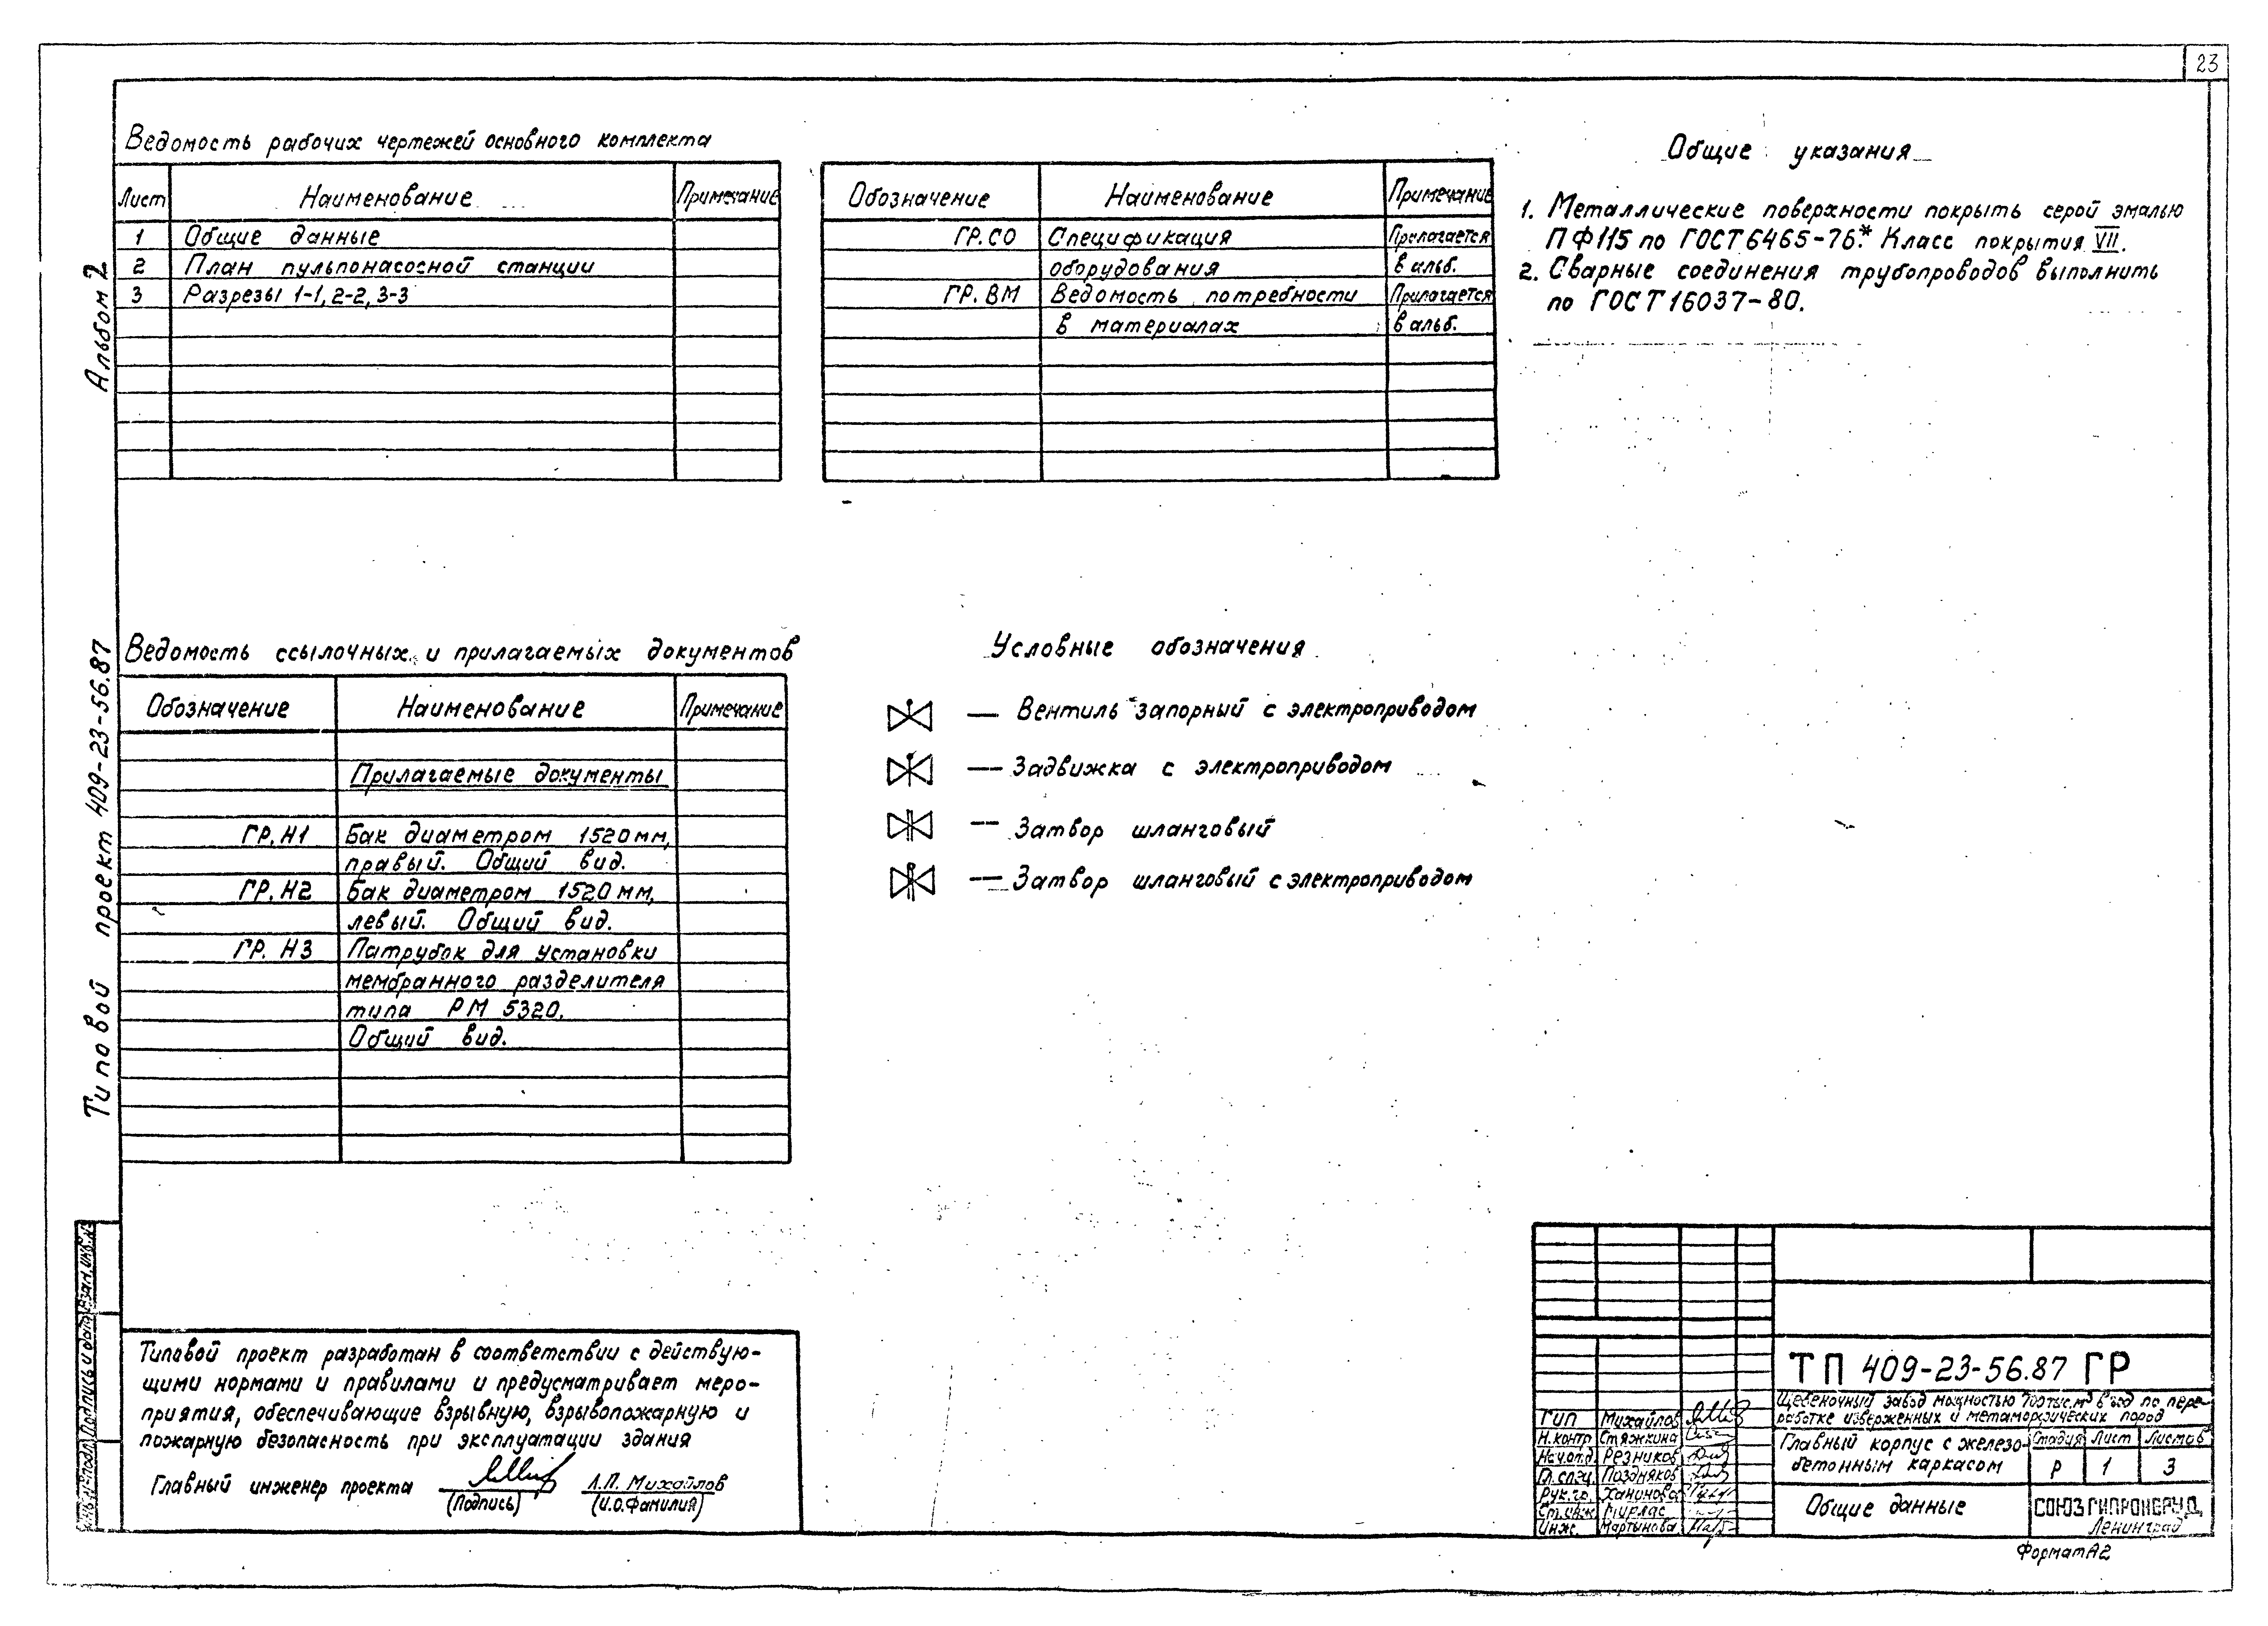 23
Альбом 2
Типовой проект 409-23-56.87
Ведомость рабочих чертежей основного комплекта
Лист Наименование Примечание
1 Общие данные
2 План пульпонасосной станции
3 Разрезы 1-1, 2-2, 3-3
Обозначение Наименование Примечание
ГР.СО Спецификация Прилагается
оборудования в альб.
ГР.ВМ Ведомость потребности Прилагается
в материалах в альб.
Общие указания
1. Металлические поверхности покрыть серой эмалью
ПФ115 по ГОСТ 6465-76.* Класс покрытия VII.
2. Сварные соединения трубопроводов выполнить
по ГОСТ 16037-80.
Ведомость ссылочных и прилагаемых документов
Обозначение Наименование Примечание
Прилагаемые документы
ГР.Н1 Бак диаметром 1520мм,
правый. Общий вид.
ГР.Н2 Бак диаметром 1520мм,
левый. Общий вид.
ГР.Н3 Патрубок для установки
мембранного разделителя
типа РМ 5320.
Общий вид.
Условные обозначения
— Вентиль запорный с электроприводом
— Задвижка с электроприводом
— Затвор шланговый
— Затвор шланговый с электроприводом
Типовой проект разработан в соответствии с действую-
щими нормами и правилами и предусматривает меро-
приятия, обеспечивающие взрывную, взрывопожарную и
пожарную безопасность при эксплуатации здания
Главный инженер проекта Л.П. Михайлов
(Подпись) (И.О.Фамилия)
Инв.№ подл. Подпись и дата Взам.инв.№
ТП 409-23-56.87 ГР
Щебеночный завод мощностью 700тыс.м³ в год по пере-
работке изверженных и метаморфических пород
ГИП Михайлов
Н.контр Стяжкина
Нач.отд. Резников
Гл.спец. Поздняков
Рук.гр. Ханинова
Ст.инж.
Инж. Мартынова
Главный корпус с железо-
бетонным каркасом
Стадия Лист Листов
Р 1 3
Общие данные
СОЮЗГИПРОНЕРУД
Ленинград
Формат А2